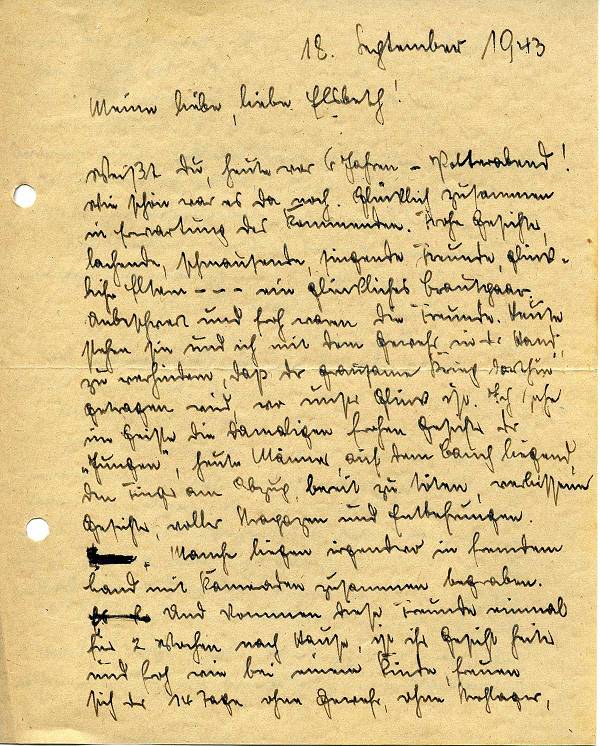 18. September 1943
Meine liebe, liebe Elsbeth!
Weißt Du, heute vor 6 Jahren – Polterabend!
Wie schön war es da noch. Glücklich zusammen
in Erwartung des Kommenden. Frohe Gesichter,
lachende, schmausende, singende Freunde, glück-
liche Eltern – – – ein glückliches Brautpaar.
Unbeschwert und froh waren die Freunde. Heute
stehen sie und ich mit dem Gewehr in der Hand,
zu verhindern, daß der grausame Krieg dorthin
getragen wird, wo unser Glück ist. Ich sehe
im Geiste die damaligen frohen Gesichter der
„Jungen", heute Männer, auf dem Bauch liegend,
den Finger am Abzug, bereit zu töten, verbissene
Gesichter, voller Strapazen und Entbehrungen.
Manche liegen irgendwo in fremdem
Land mit Kameraden zusammen begraben.
Und kommen diese Freunde einmal
für 2 Wochen nach Hause, ist ihr Gesicht heiter
und froh wie bei einem Kinde, freuen
sich der 14 Tage ohne Gewehr, ohne